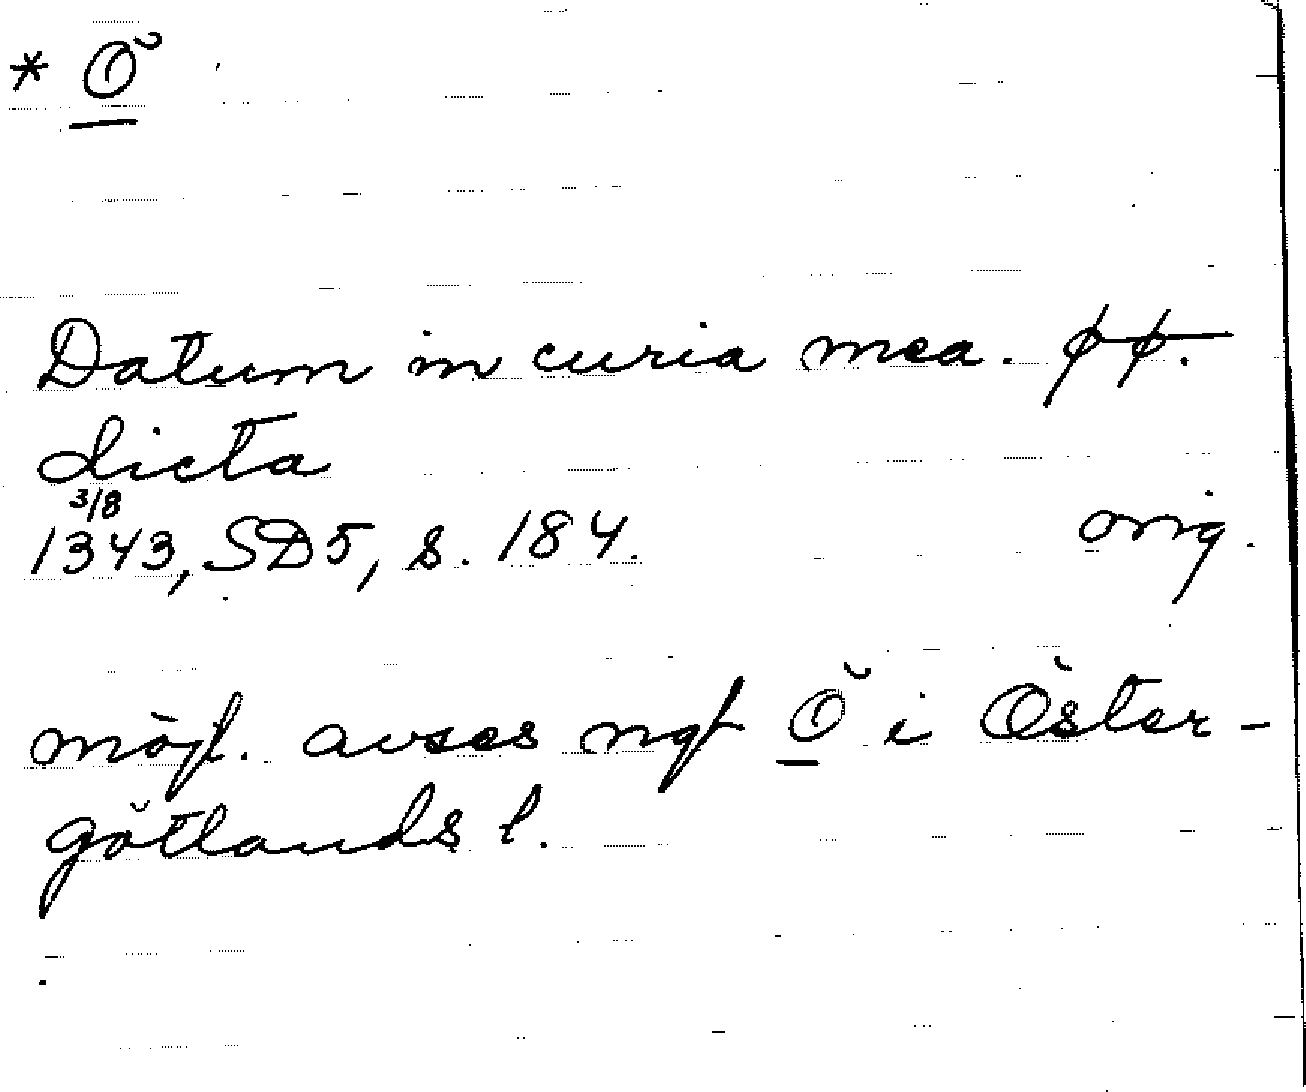 * Ö
Datum in curia mea. øø.
dicta
3/8
1343, SD5, s. 184. orig.
möjl. avses ngt Ö i Öster-
götlands l.